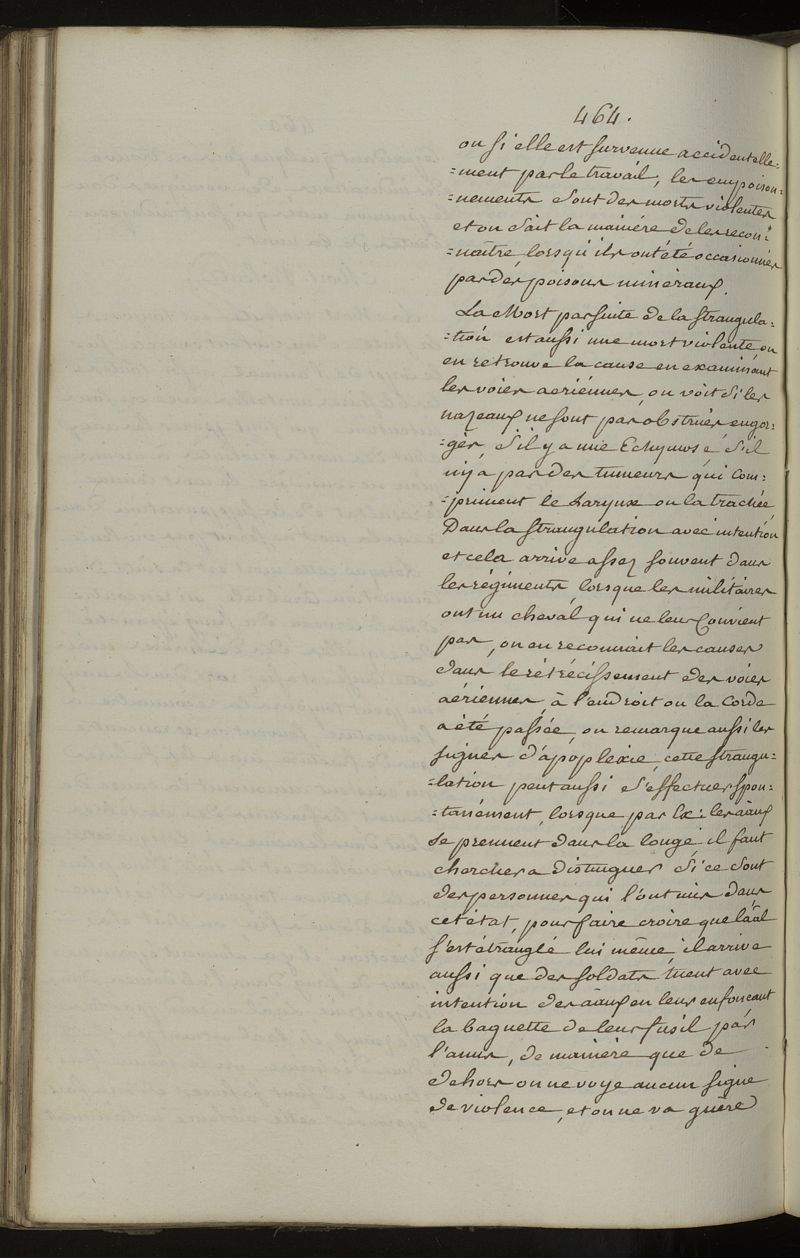 464.
ou si elle est survenue accidentelle=
=ment par le travail, les empoison=
=nements sont des morts violentes
et on sait la mainière de les recon=
=naître, lorsqu'ils ont été occasionnés
par des poisons minéraux.
La Mort par suite de la strangula=
=tion est aussi une mort violente on
en retrouve la cause en examinant
les voies aeriénnes, on voit si les
nazeaux ne sont pas obstrués engor=
=gés, s'il y a une Echymose, s'il
n'y a pas des tumeurs qui com=
=priment le Larynx ou la trachée
Dans la strangulation avec intention
et cela arrive assez souvent dans
les régiments, lorsque les militaires
ont un cheval qui ne leur Convient
pas, on en reconnait les causes
dans le rétrécissement des voies
aériennes, à l'endroit ou la Corde
a été passée, on remarque aussi les
signes d'apoplexie, cette strangu=
=lation peut aussi s'effectuer spon=
=tanément, lorsque par Ex: les aaux
se prennent dans la longe, il faut
chercher a Distinguer si ce sont
des personnes qui l'ont mis dans
cet état, pour faire croire que l'aal
s'est étranglé lui même, il arrive
aussi que des soldats tuent avec
intention des aaux en leur enfoncant
la baguette de leur fusil par
l'anus, de mainière que de
dehors on ne voye aucun signe
de violence, et on ne va guère